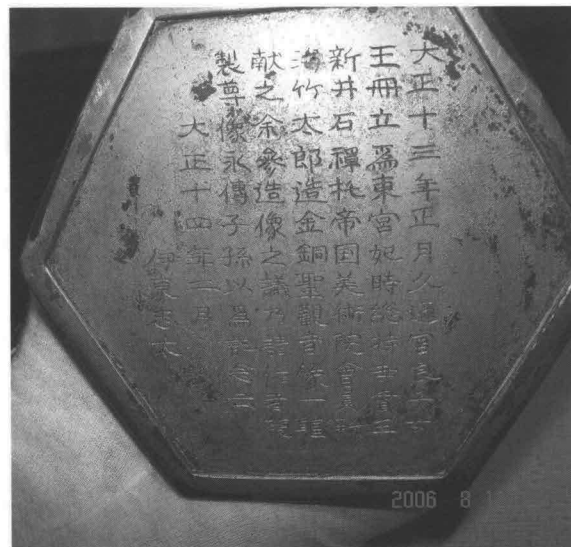 大正十三年正月久邇宮良子女
王冊立爲東宮妃時總持寺貫主
新井石禪托帝国美術院會員新
海竹太郎造金銅聖觀音像一軀
献之余參造像之議乃請作者
製尊像永傳子孫以爲記念云
大正十四年二月
伊東忠太
2006 8